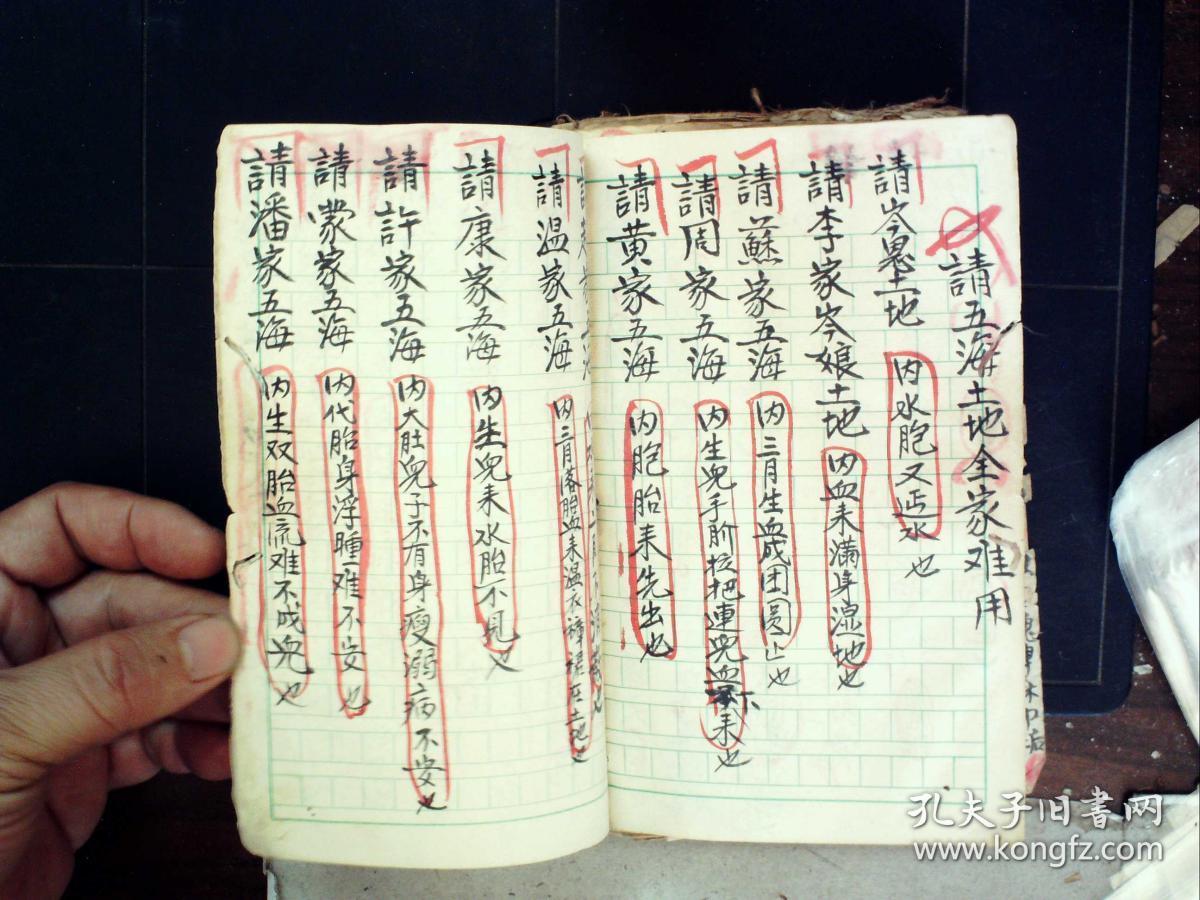 請五海土地全家难用
請岑 土地 内水胞又 水也
請李家岑娘土地 内血来满身湿地也
請蘇家五海 内三月生血成团圆止也
請周家五海 内生児手 拉把連児血下来也
請黄家五海 内胞胎来先出也
請温家五海 内三月落胎血来温衣 在土地也
請康家五海 内生児来水胎不見也
請許家五海 内大肚児子不有身瘦溺病不安也
請蒙家五海 内代胎身浮腫难不安也
請潘家五海 内生双胎血流难不成児也
孔夫子旧书网
www.kongfz.com